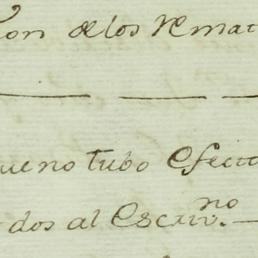 on de los remat
ueno tubo efect
dos al Escriv.no